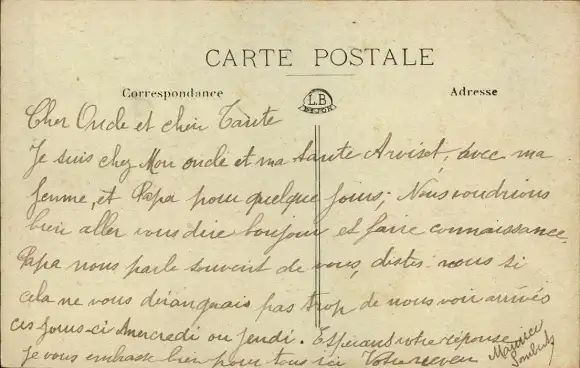 CARTE POSTALE
Correspondance
L.B
DIJON
Adresse
Cher Oncle et chère Tante
Je suis chez Mon oncle et ma tante Arviset, avec ma
femme, et Papa pour quelque jours; Nous voudrions
bien aller vous dire bonjour et faire connaissance.
Papa nous parle souvent de vous, dites-nous si
cela ne vous dérangerais pas trop de nous voir arrivés
ces jours-ci Mercredi ou jeudi. Espérant votre réponse
je vous embrasse bien pour tous ici Votre neveu
Maurice